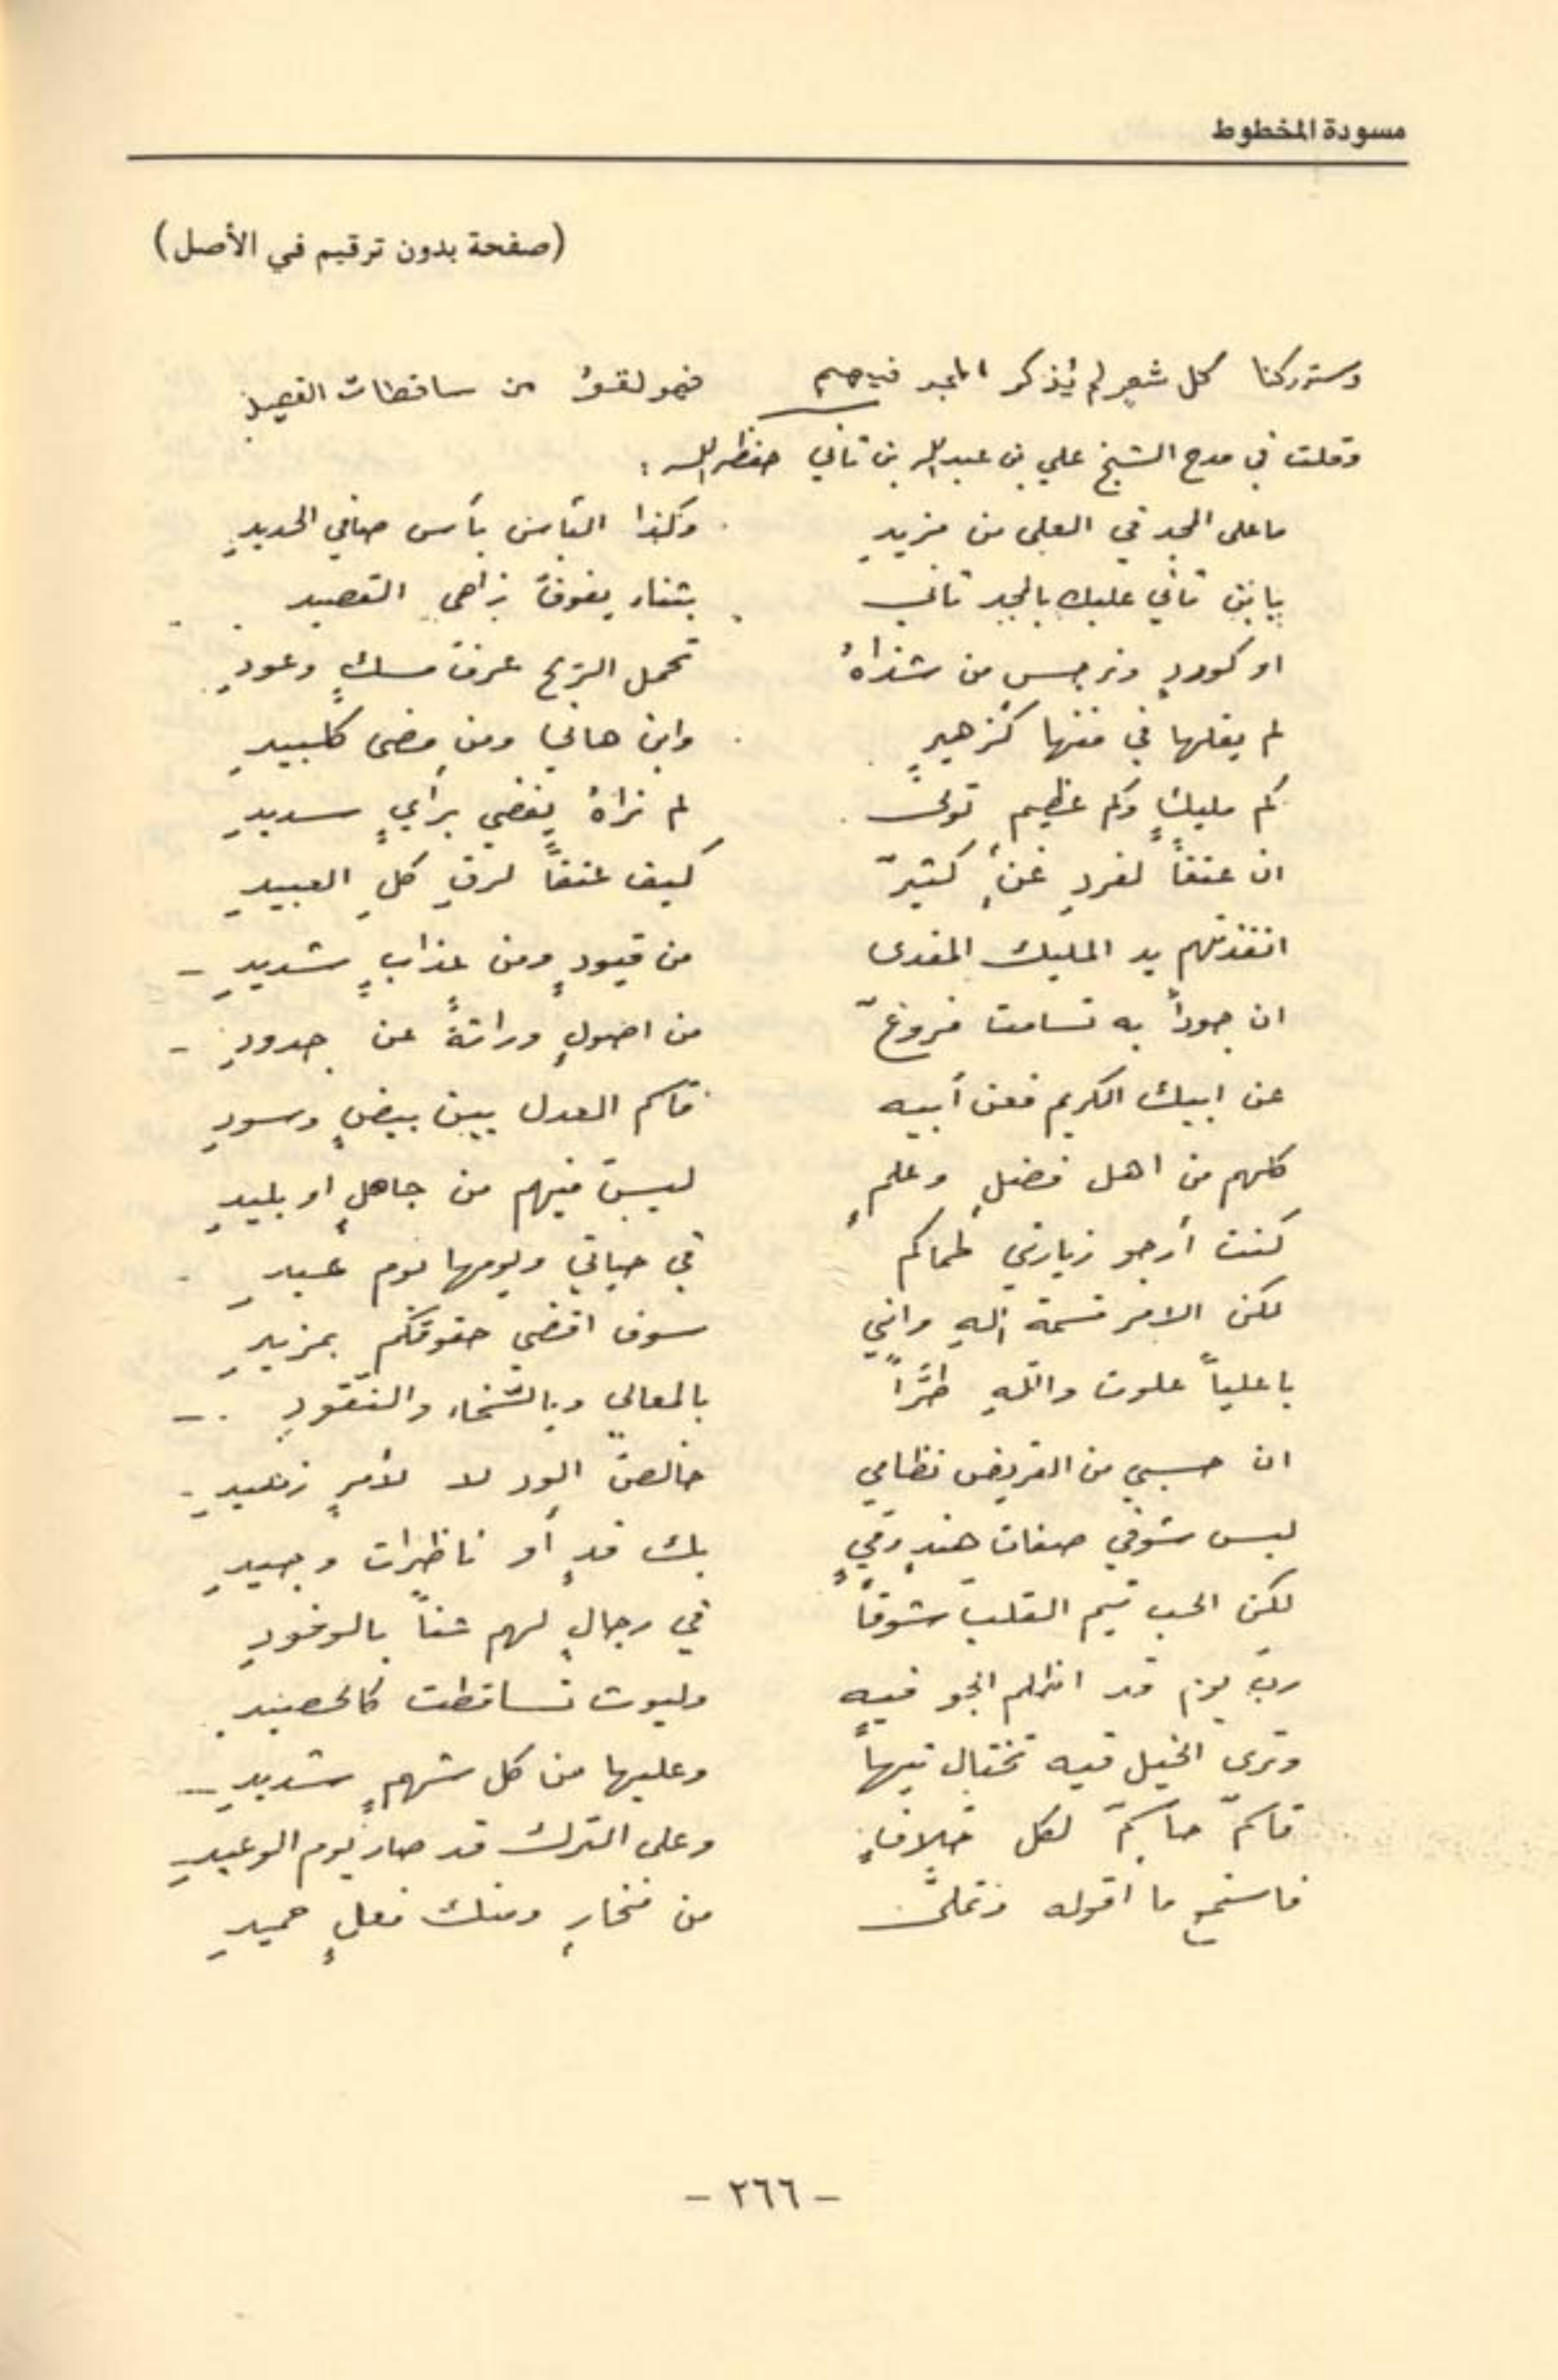 مسودة المخطوط
(صفحة بدون ترقيم في الأصل)
وستركنا كل شعرٍ لم يُذكر المجد فيهم فهو لغوٌ من ساقطات القصيدِ
وقلت في مدح الشيخ علي بن عبد الله بن ثاني حفظه الله :
ما على المجد في العلى من مزيدِ وكذا البأس بأس صافي الحديدِ
يا بن ثاني عليك بالمجد ثاني بثناء يفوق زاهي القصيد
او كوردٍ ونرجسٍ من شذاهُ تحمل الريح عرف مسكٍ وعودِ
لم يقلها في فنها كزهيرٍ وابن هاني ومن مضى كلبيدِ
كم مليكٍ وكم عظيمٍ تولى لم نراهُ يقضي برأيٍ سديدِ
ان عتقاً لفردِ عنٍ كثيرٌ كيف عتقاً لرقِ كلِ العبيدِ
انقذتهم يد المليك المفدى من قيودٍ ومن عذابٍ شديدِ
ان جوداً به تسامت فروعٌ من اصولٍ وراثةً عن جدودِ
عن ابيك الكريم فعن أبيه قاسم العدل بين بيضٍ وسودِ
كلهم من اهل فضلٍ وعلمٍ ليس فيهم من جاهلٍ او بليدِ
كنت أرجو زيارتي لحماكم في حياتي ويومها يوم عيدِ
لكن الامر قسمة إلهٍ وانني سوف اقضي حقوقكم بمزيدِ
يا علياً علوت واللهِ طُرَّاً بالمعالي وبالسخاء والنقودِ
ان حسبي من القريض نظامي خالص الود لا لأمرٍ زهيدِ
ليس شوقي صفات هندٍ ومي بك قدٍ أو ناظرات وجيدِ
لكن الحب تيم القلب شوقاً في رجالٍ لهم شغفاً بالوفودِ
رب يوم قد اظلم الجو فيه وليوث تساقطت كالحصيدِ
وترى الخيل فيه تختال تيهاً وعليها من كل شهمٍ شديدِ
قاسمٌ حاسمٌ لكل خلافٍ وعلى الترك قد صار يوم الوعيدِ
فاستمع ما اقوله وتملى من فخارٍ ومنك فعلٍ حميدِ
- ٢٦٦ -